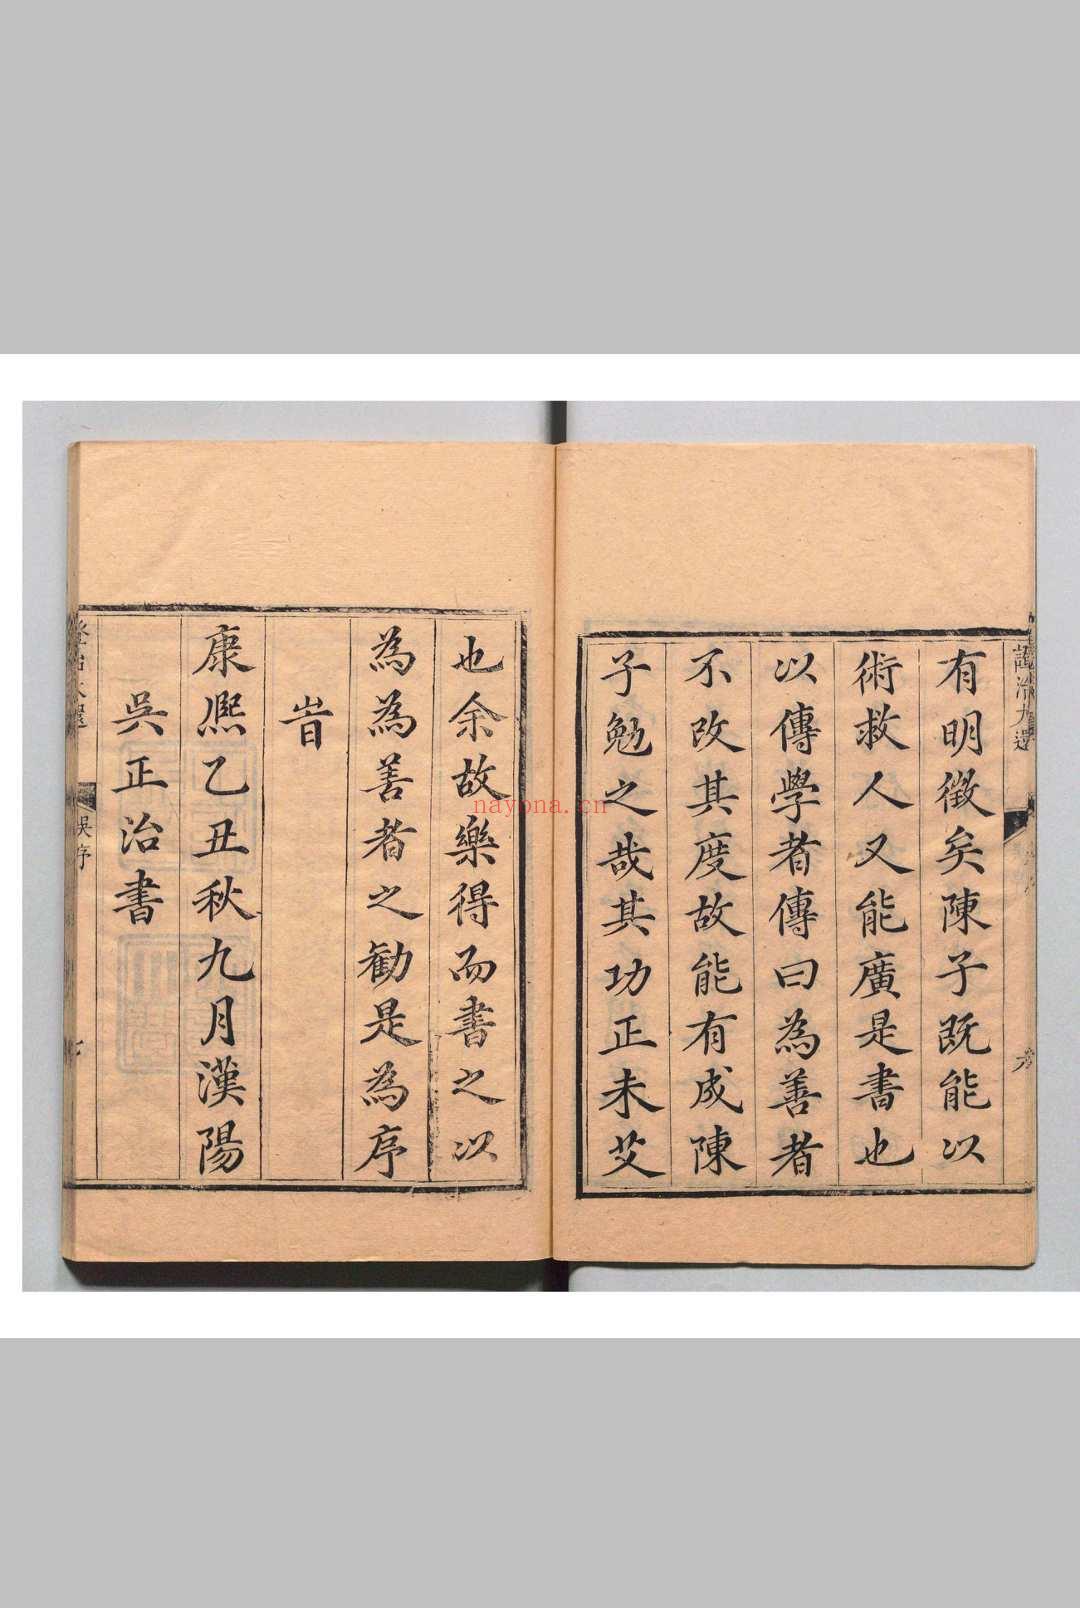 有明徵矣陳子既能以
術救人又能廣是書也
以傳學者傳曰為善者
不改其度故能有成陳
子勉之哉其功正未艾
也余故樂得而書之以
為為善者之勸是為序
旹
康熙乙丑秋九月漢陽
吳正治書
吳序
nayona.cn